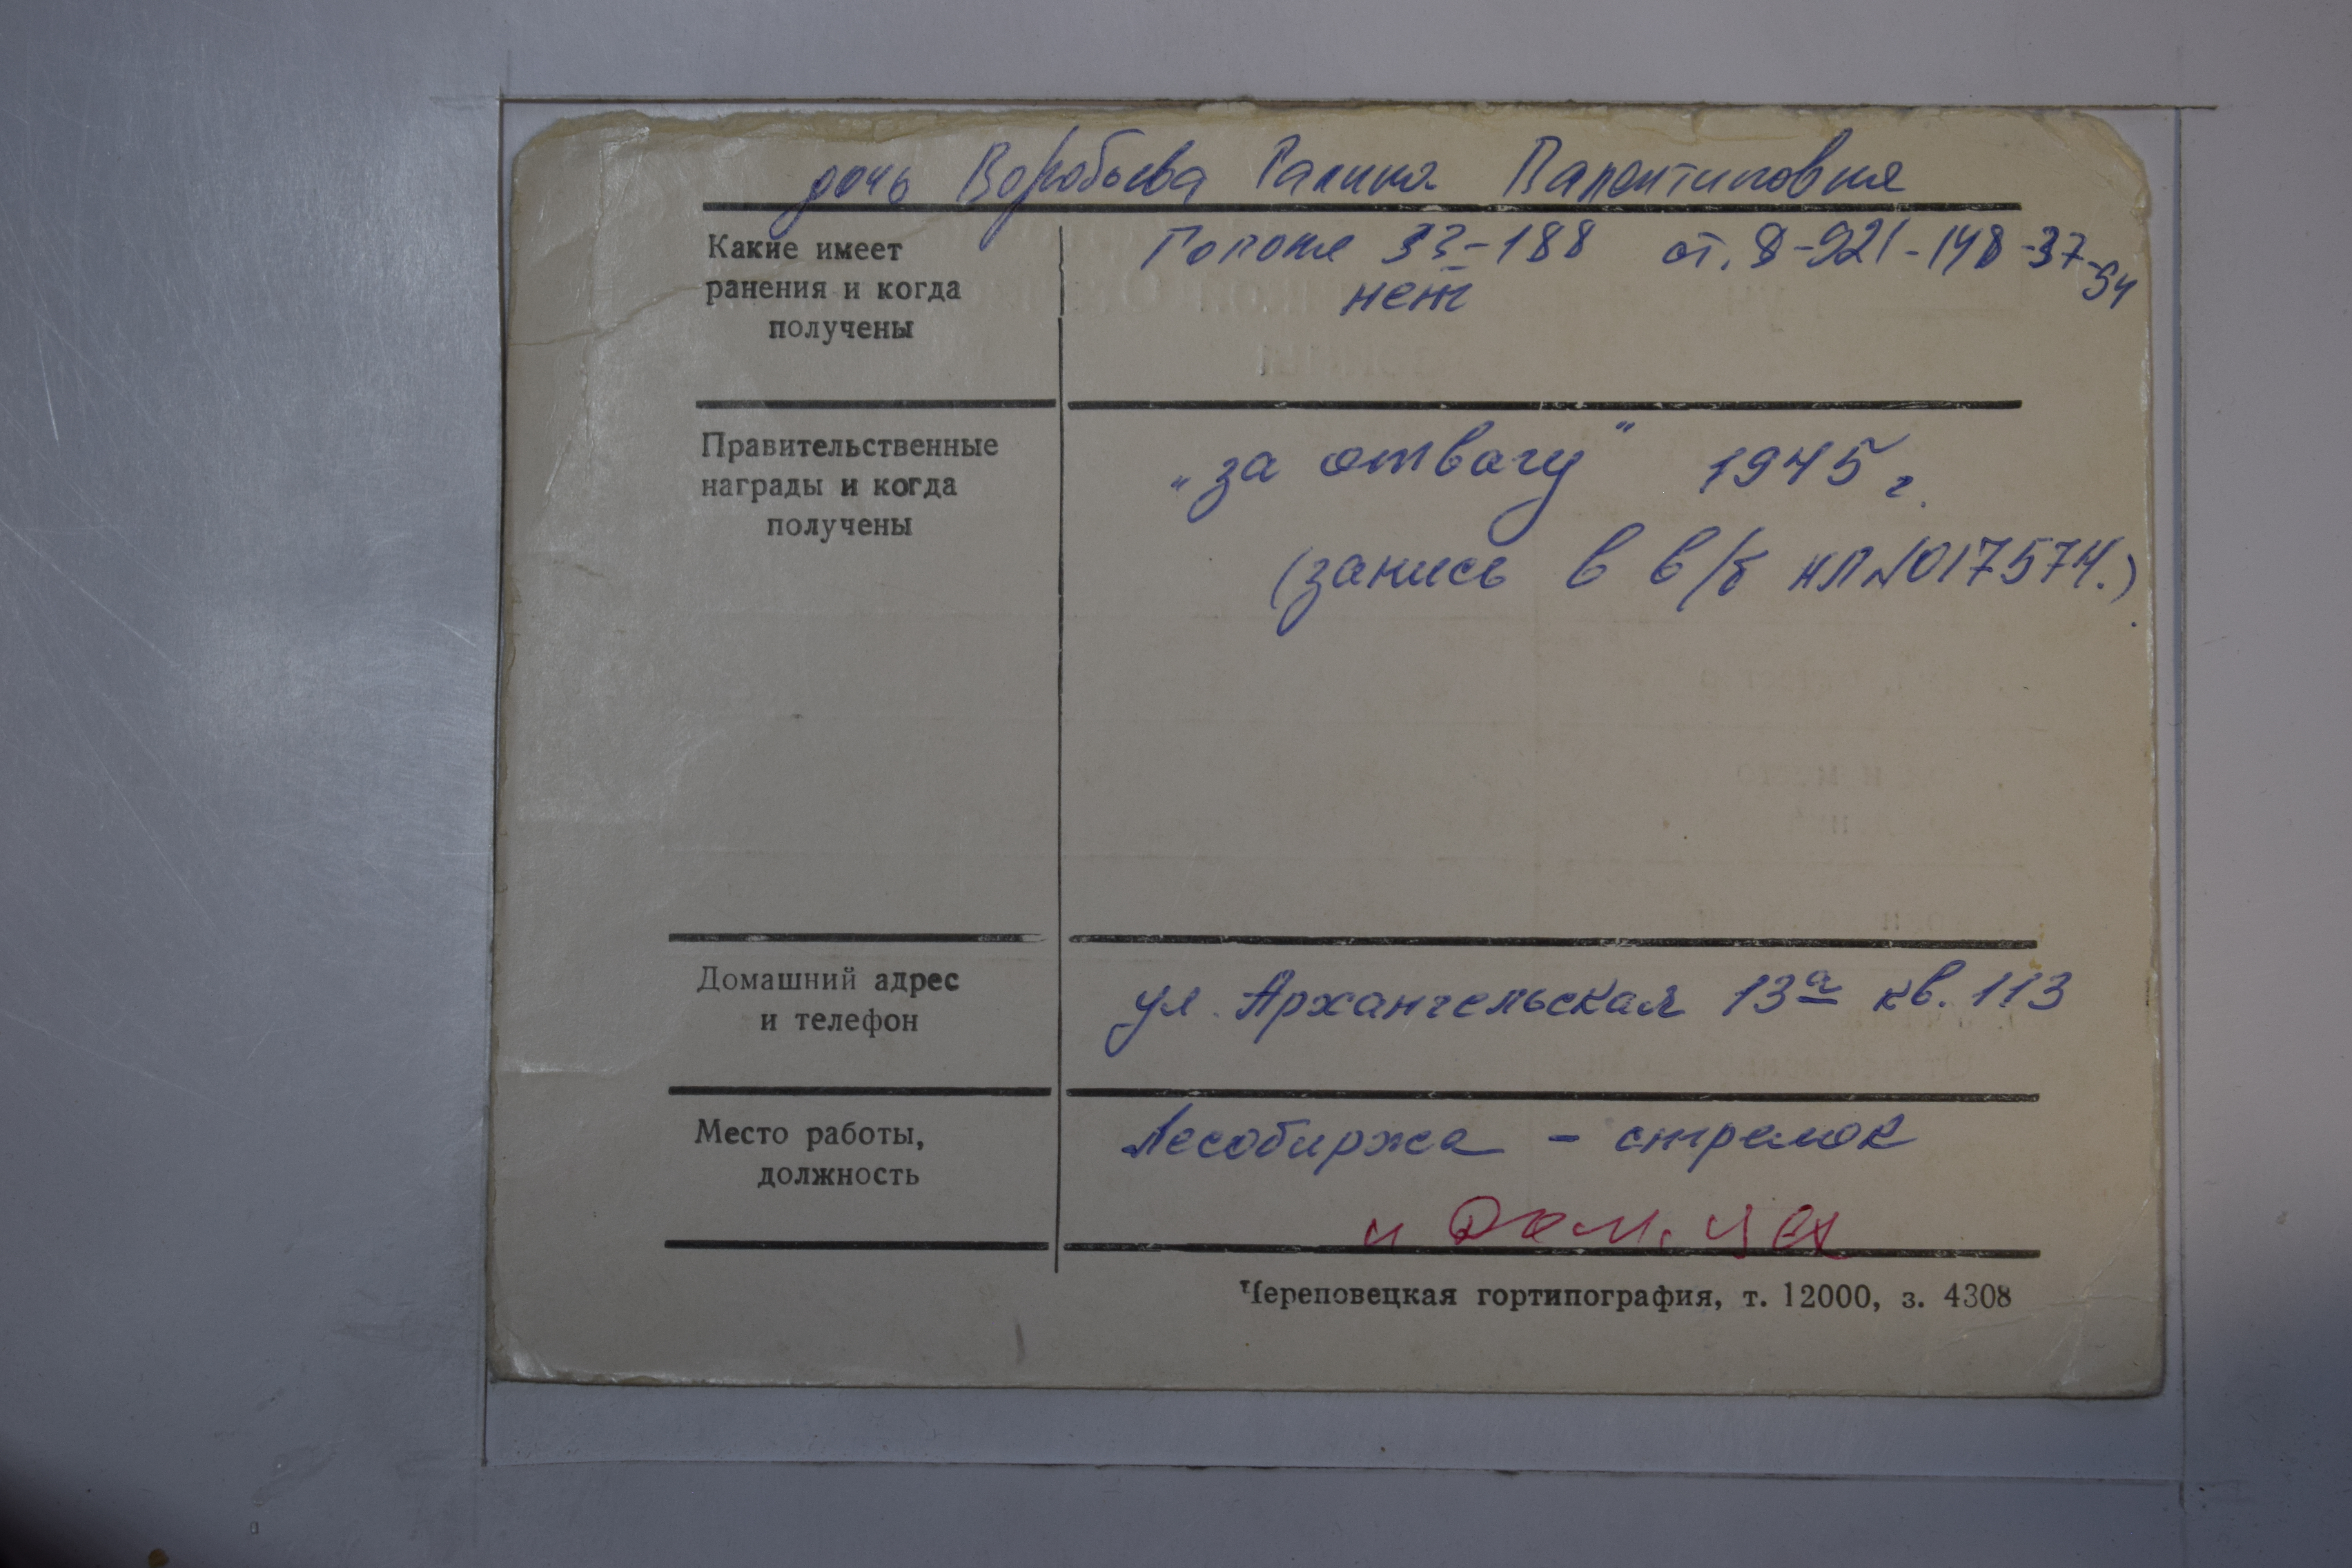 дочь Воробьева Галина Валентиновна
Какие имеет
ранения и когда
получены
33-188 от. 8-921-148-37-94
нет
Правительственные
награды и когда
получены
„за отвагу" 1945 г.
(запись в в/б НЛ №017574.)
Домашний адрес
и телефон
ул. Архангельская 13а кв. 113
Место работы,
должность
Лесобиржа - стрелок
и Дом. цех
Череповецкая гортипография, т. 12000, з. 4308